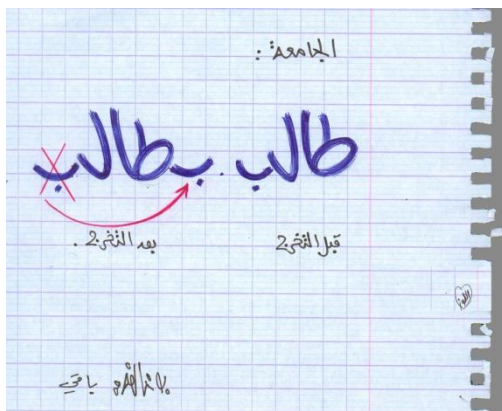 الجامعة :
طالب بطالب
قبل التخرج بعد التخرج .
باقي